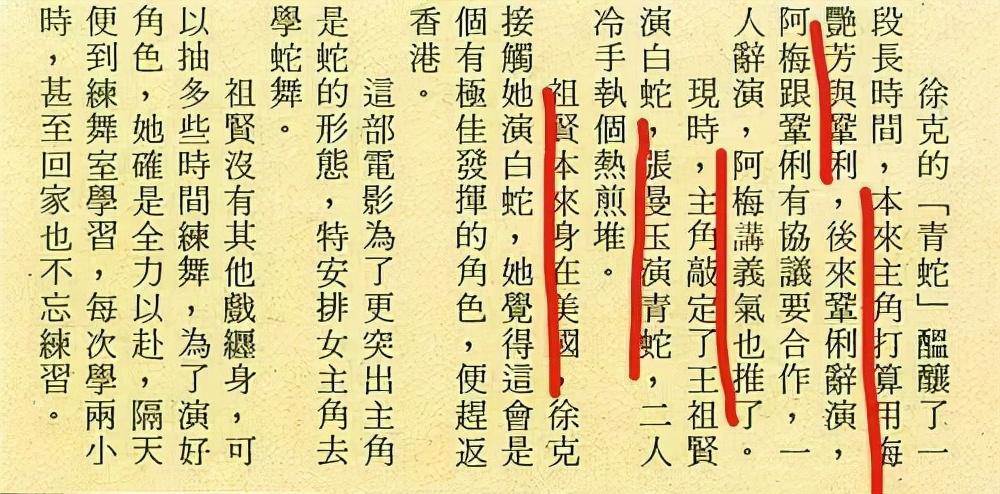 徐克的「青蛇」醞釀了一
段長時間，本來主角打算用梅
艷芳與鞏利，後來鞏俐辭演，
阿梅跟鞏俐有協議要合作，一
人辭演，阿梅講義氣也推了。
現時，主角敲定了王祖賢
演白蛇，張曼玉演青蛇，二人
冷手執個熱煎堆。
祖賢本來身在美國，徐克
接觸她演白蛇，她覺得這會是
個有極佳發揮的角色，便趕返
香港。
這部電影為了更突出主角
是蛇的形態，特安排女主角去
學蛇舞。
祖賢沒有其他戲纏身，可
以抽多些時間練舞，為了演好
角色，她確是全力以赴，隔天
便到練舞室學習，每次學兩小
時，甚至回家也不忘練習。